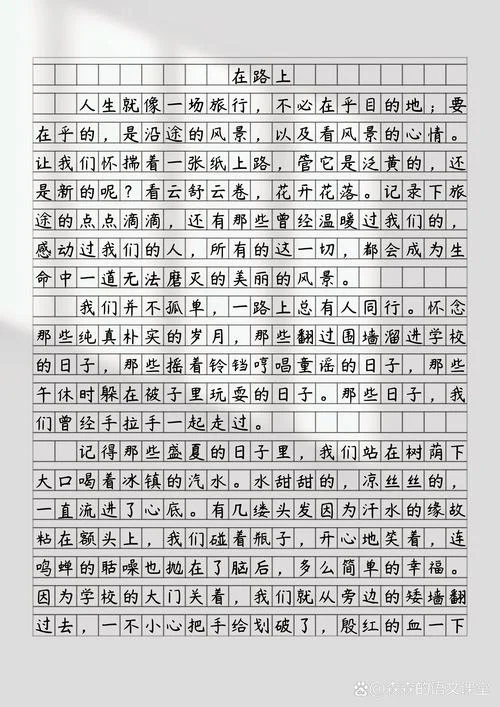 在路上
人生就像一场旅行，不必在乎目的地；要
在乎的，是沿途的风景，以及看风景的心情。
让我们怀揣着一张纸上路，管它是泛黄的，还
是新的呢？看云舒云卷，花开花落。记录下旅
途的点点滴滴，还有那些曾经温暖过我们的，
感动过我们的人，所有的这一切，都会成为生
命中一道无法磨灭的美丽的风景。
我们并不孤单，一路上总有人同行。怀念
那些纯真朴实的岁月，那些翻过围墙溜进学校
的日子，那些摇着铃铛哼唱童谣的日子，那些
午休时躲在被子里玩耍的日子。那些日子，我
们曾经手拉手一起走过。
记得那些盛夏的日子里，我们站在树荫下
大口喝着冰镇的汽水。水甜甜的，凉丝丝的，
一直流进了心底。有几缕头发因为汗水的缘故
粘在额头上，我们碰着瓶子，开心地笑着，连
鸣蝉的聒噪也抛在了脑后，多么简单的幸福。
因为学校的大门关着，我们就从旁边的矮墙翻
过去，一不小心把手给划破了，殷红的血一下
森森的语文课堂